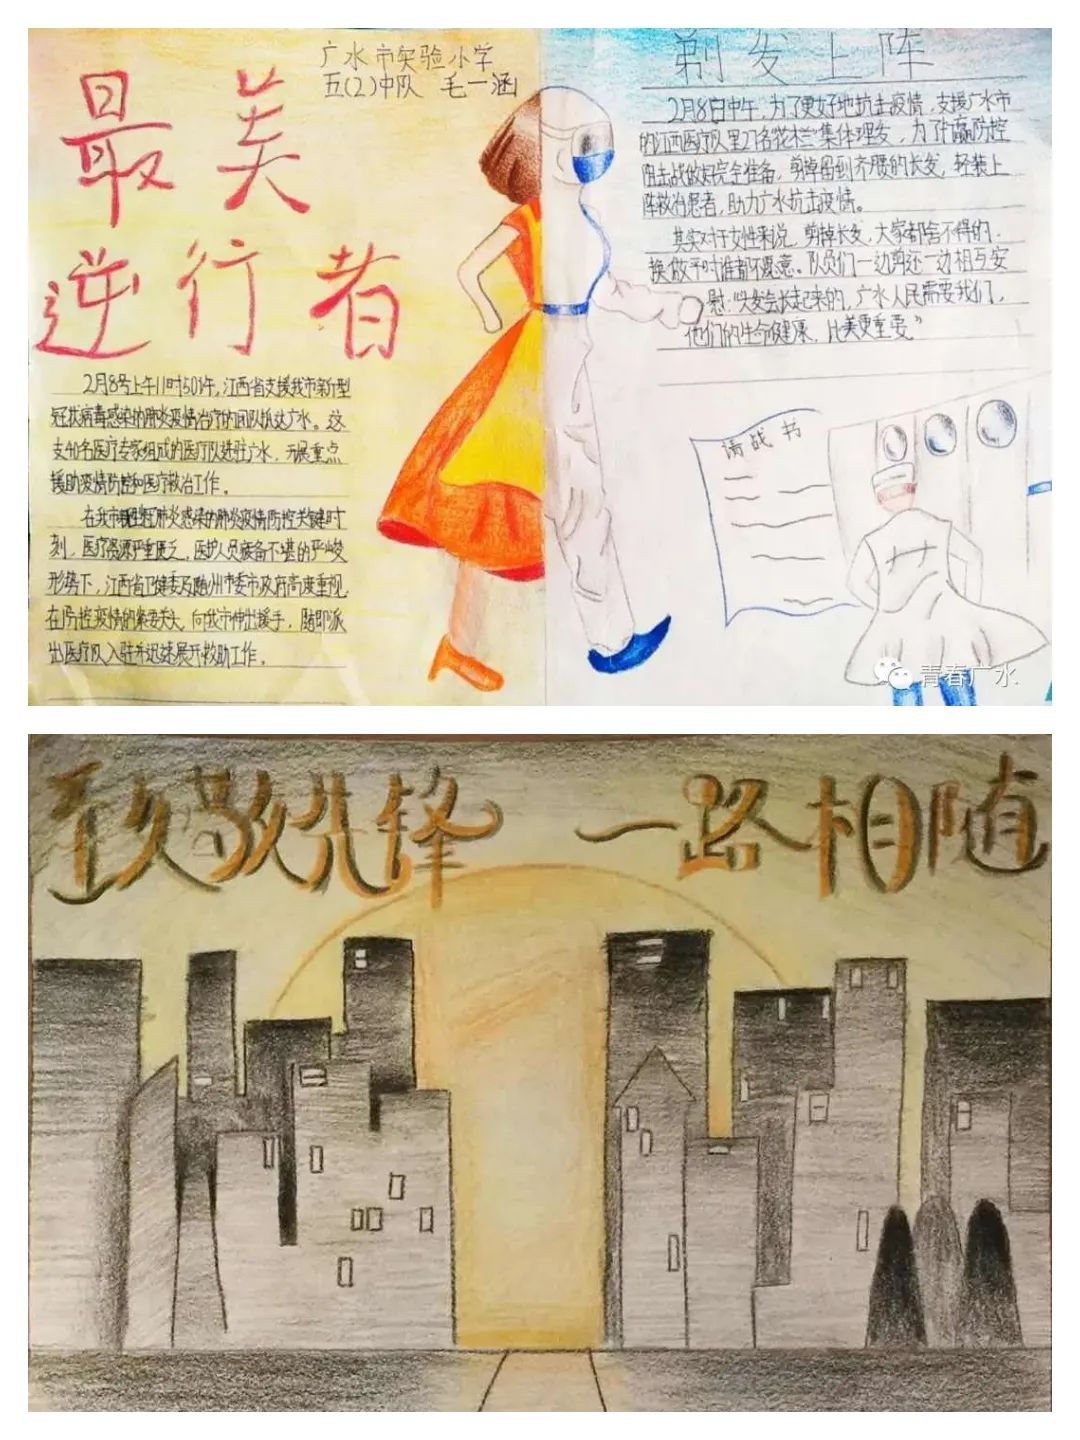 广水市实验小学
五(2)中队 毛一涵
最美
逆行者
2月8号上午11时50许，江西省支援我市新型
冠状病毒感染的肺炎疫情治疗的团队抵达广水。这
支40名医疗专家组成的医疗队进驻广水，开展重点
援助疫情防控和医疗救治工作。
在我市新冠肺炎感染的肺炎疫情防控关键时
刻，医疗资源严重匮乏，医护人员疲备不堪的严峻
形势下，江西省卫健委及随州市委市政府高度重视，
在防控疫情的紧要关头，向我市伸出援手，随即派
出医疗队入驻并迅速展开救助工作。
剃发上阵
2月8日中午，为了更好地抗击疫情，支援广水市
的江西医疗队里27名“花木兰”集体理发，为了打赢防控
阻击战做好完全准备，剪掉留到齐腰的长发，轻装上
阵救治患者，助力广水抗击疫情。
其实对于女性来说，剪掉长发，大家都舍不得的，
换做平时谁都不愿意。队员们一边剪还一边相互安
慰，“头发会长起来的，广水人民需要我们，
他们的生命健康，比美更重要”
请战书
青春广水
致敬先锋 一路相随